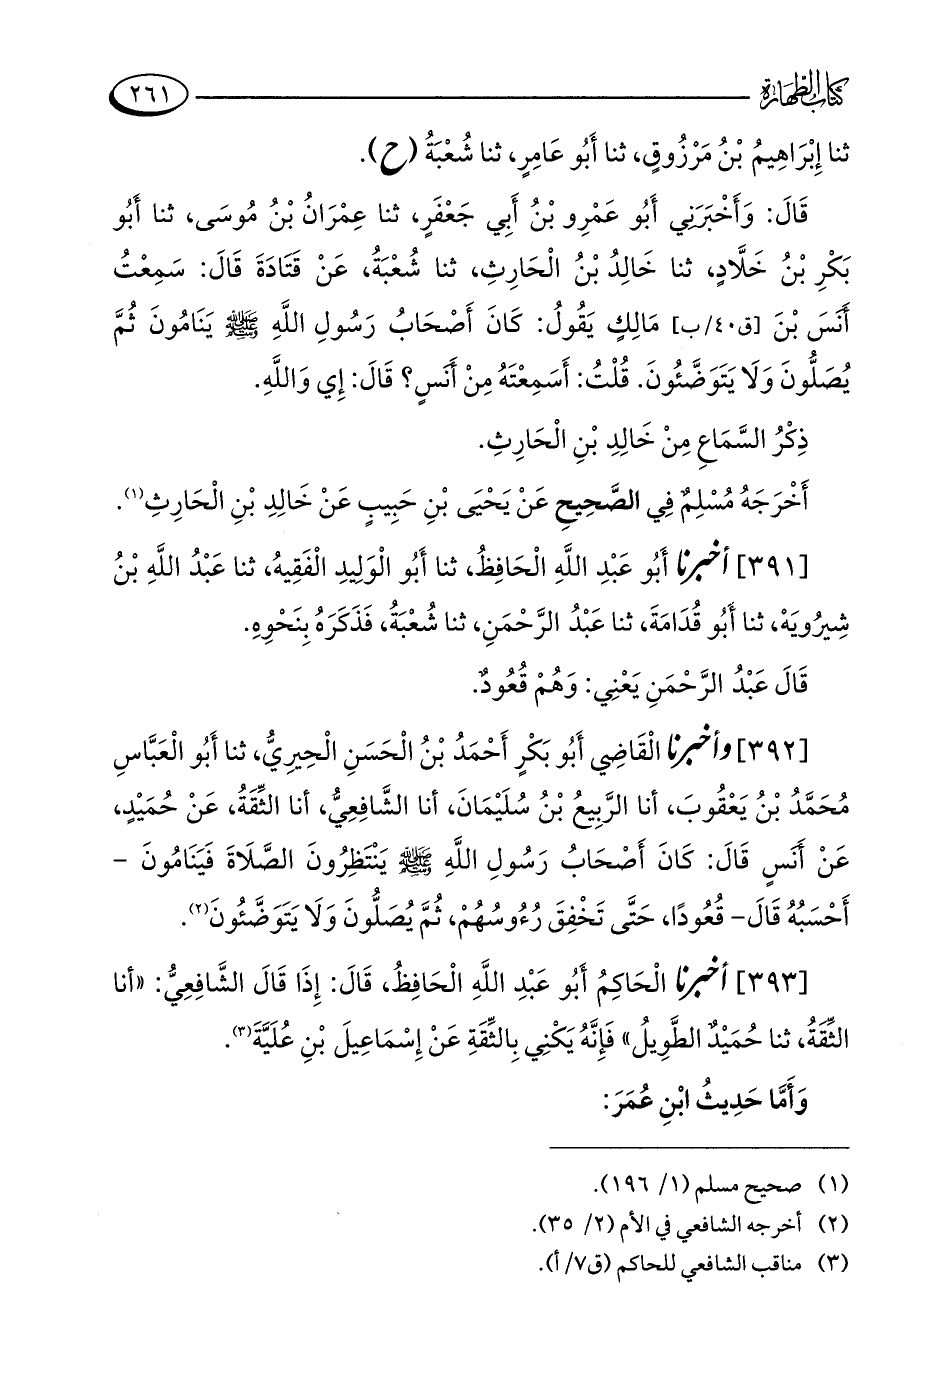 كتاب الطهارة ٢٦١
ثنا إِبْرَاهِيمُ بْنُ مَرْزُوقٍ، ثنا أَبُو عَامِرٍ، ثنا شُعْبَةُ (ح).
قَالَ: وَأَخْبَرَنِي أَبُو عَمْرِو بْنُ أَبِي جَعْفَرٍ، ثنا عِمْرَانُ بْنُ مُوسَى، ثنا أَبُو
بَكْرِ بْنُ خَلَّادٍ، ثنا خَالِدُ بْنُ الْحَارِثِ، ثنا شُعْبَةُ، عَنْ قَتَادَةَ قَالَ: سَمِعْتُ
أَنَسَ بْنَ [ق٤٠/ب] مَالِكٍ يَقُولُ: كَانَ أَصْحَابُ رَسُولِ اللَّهِ ﷺ يَنَامُونَ ثُمَّ
يُصَلُّونَ وَلَا يَتَوَضَّئُونَ. قُلْتُ: أَسَمِعْتَهُ مِنْ أَنَسٍ؟ قَالَ: إِي وَاللَّهِ.
ذِكْرُ السَّمَاعِ مِنْ خَالِدِ بْنِ الْحَارِثِ.
أَخْرَجَهُ مُسْلِمٌ فِي الصَّحِيحِ عَنْ يَحْيَى بْنِ حَبِيبٍ عَنْ خَالِدِ بْنِ الْحَارِثِ(١).
[٣٩١] أخبرنا أَبُو عَبْدِ اللَّهِ الْحَافِظُ، ثنا أَبُو الْوَلِيدِ الْفَقِيهُ، ثنا عَبْدُ اللَّهِ بْنُ
شِيرُويَهْ، ثنا أَبُو قُدَامَةَ، ثنا عَبْدُ الرَّحْمَنِ، ثنا شُعْبَةُ، فَذَكَرَهُ بِنَحْوِهِ.
قَالَ عَبْدُ الرَّحْمَنِ يَعْنِي: وَهُمْ قُعُودٌ.
[٣٩٢] وأخبرنا الْقَاضِي أَبُو بَكْرٍ أَحْمَدُ بْنُ الْحَسَنِ الْحِيرِيُّ، ثنا أَبُو الْعَبَّاسِ
مُحَمَّدُ بْنُ يَعْقُوبَ، أنا الرَّبِيعُ بْنُ سُلَيْمَانَ، أنا الشَّافِعِيُّ، أنا الثِّقَةُ، عَنْ حُمَيْدٍ،
عَنْ أَنَسٍ قَالَ: كَانَ أَصْحَابُ رَسُولِ اللَّهِ ﷺ يَنْتَظِرُونَ الصَّلَاةَ فَيَنَامُونَ -
أَحْسَبُهُ قَالَ- قُعُودًا، حَتَّى تَخْفِقَ رُءُوسُهُمْ، ثُمَّ يُصَلُّونَ وَلَا يَتَوَضَّئُونَ(٢).
[٣٩٣] أخبرنا الْحَاكِمُ أَبُو عَبْدِ اللَّهِ الْحَافِظُ، قَالَ: إِذَا قَالَ الشَّافِعِيُّ: «أنا
الثِّقَةُ، ثنا حُمَيْدٌ الطَّوِيلُ» فَإِنَّهُ يَكْنِي بِالثِّقَةِ عَنْ إِسْمَاعِيلَ بْنِ عُلَيَّةَ(٣).
وَأَمَّا حَدِيثُ ابْنِ عُمَرَ:
(١) صحيح مسلم (١/ ١٩٦).
(٢) أخرجه الشافعي في الأم (٢/ ٣٥).
(٣) مناقب الشافعي للحاكم (ق٧/ أ).